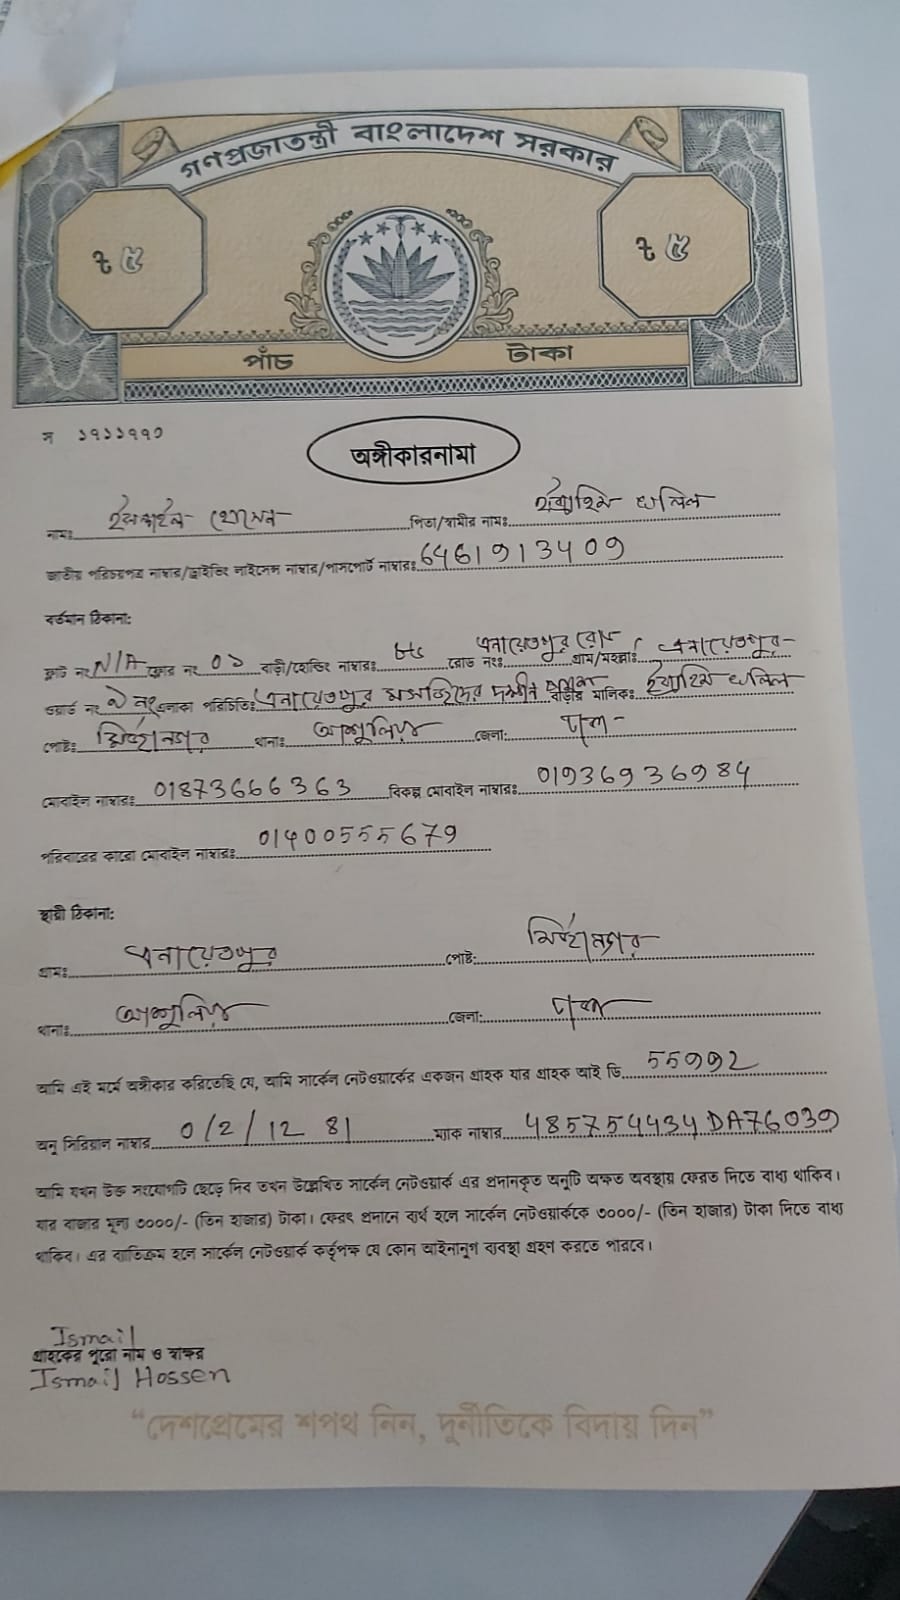 গণপ্রজাতন্ত্রী বাংলাদেশ সরকার
৳ ৫ ৳ ৫
পাঁচ টাকা
স ১৭১১৭৭০
অঙ্গীকারনামা
নামঃ ইসমাইল হোসেন পিতা/স্বামীর নামঃ ইব্রাহিম খলিল
জাতীয় পরিচয়পত্র নাম্বার/ড্রাইভিং লাইসেন্স নাম্বার/পাসপোর্ট নাম্বারঃ 6461913409
বর্তমান ঠিকানা:
ফ্লাট নং N/A ফ্লোর নং ০১ বাড়ী/হোল্ডিং নাম্বারঃ রোড নংঃ এনায়েতপুর রোড গ্রাম/মহল্লাঃ এনায়েতপুর
ওয়ার্ড নং ৯ নং এলাকা পরিচিতিঃ এনায়েতপুর মসজিদের দক্ষীন পাশে বাড়ীর মালিকঃ ইব্রাহিম খলিল
পোষ্টঃ মির্জানগর থানাঃ আশুলিয়া জেলা: ঢাকা
মোবাইল নাম্বারঃ 01873666363 বিকল্প মোবাইল নাম্বারঃ 01936936984
পরিবারের কারো মোবাইল নাম্বারঃ 01400555679
স্থায়ী ঠিকানা:
গ্রামঃ এনায়েতপুর পোষ্ট: মির্জানগর
থানাঃ আশুলিয়া জেলা: ঢাকা
আমি এই মর্মে অঙ্গীকার করিতেছি যে, আমি সার্কেল নেটওয়ার্কের একজন গ্রাহক যার গ্রাহক আই ডি 55992
অনু সিরিয়াল নাম্বার 0/2/12 81 ম্যাক নাম্বার 485754434DA76039
আমি যখন উক্ত সংযোগটি ছেড়ে দিব তখন উল্লেখিত সার্কেল নেটওয়ার্ক এর প্রদানকৃত অনুটি অক্ষত অবস্থায় ফেরত দিতে বাধ্য থাকিব।
যার বাজার মূল্য ৩০০০/- (তিন হাজার) টাকা। ফেরৎ প্রদানে ব্যর্থ হলে সার্কেল নেটওয়ার্ককে ৩০০০/- (তিন হাজার) টাকা দিতে বাধ্য
থাকিব। এর ব্যতিক্রম হলে সার্কেল নেটওয়ার্ক কর্তৃপক্ষ যে কোন আইনানুগ ব্যবস্থা গ্রহণ করতে পারবে।
Ismail
গ্রাহকের পুরো নাম ও স্বাক্ষর
Ismail Hossen
“দেশপ্রেমের শপথ নিন, দুর্নীতিকে বিদায় দিন”